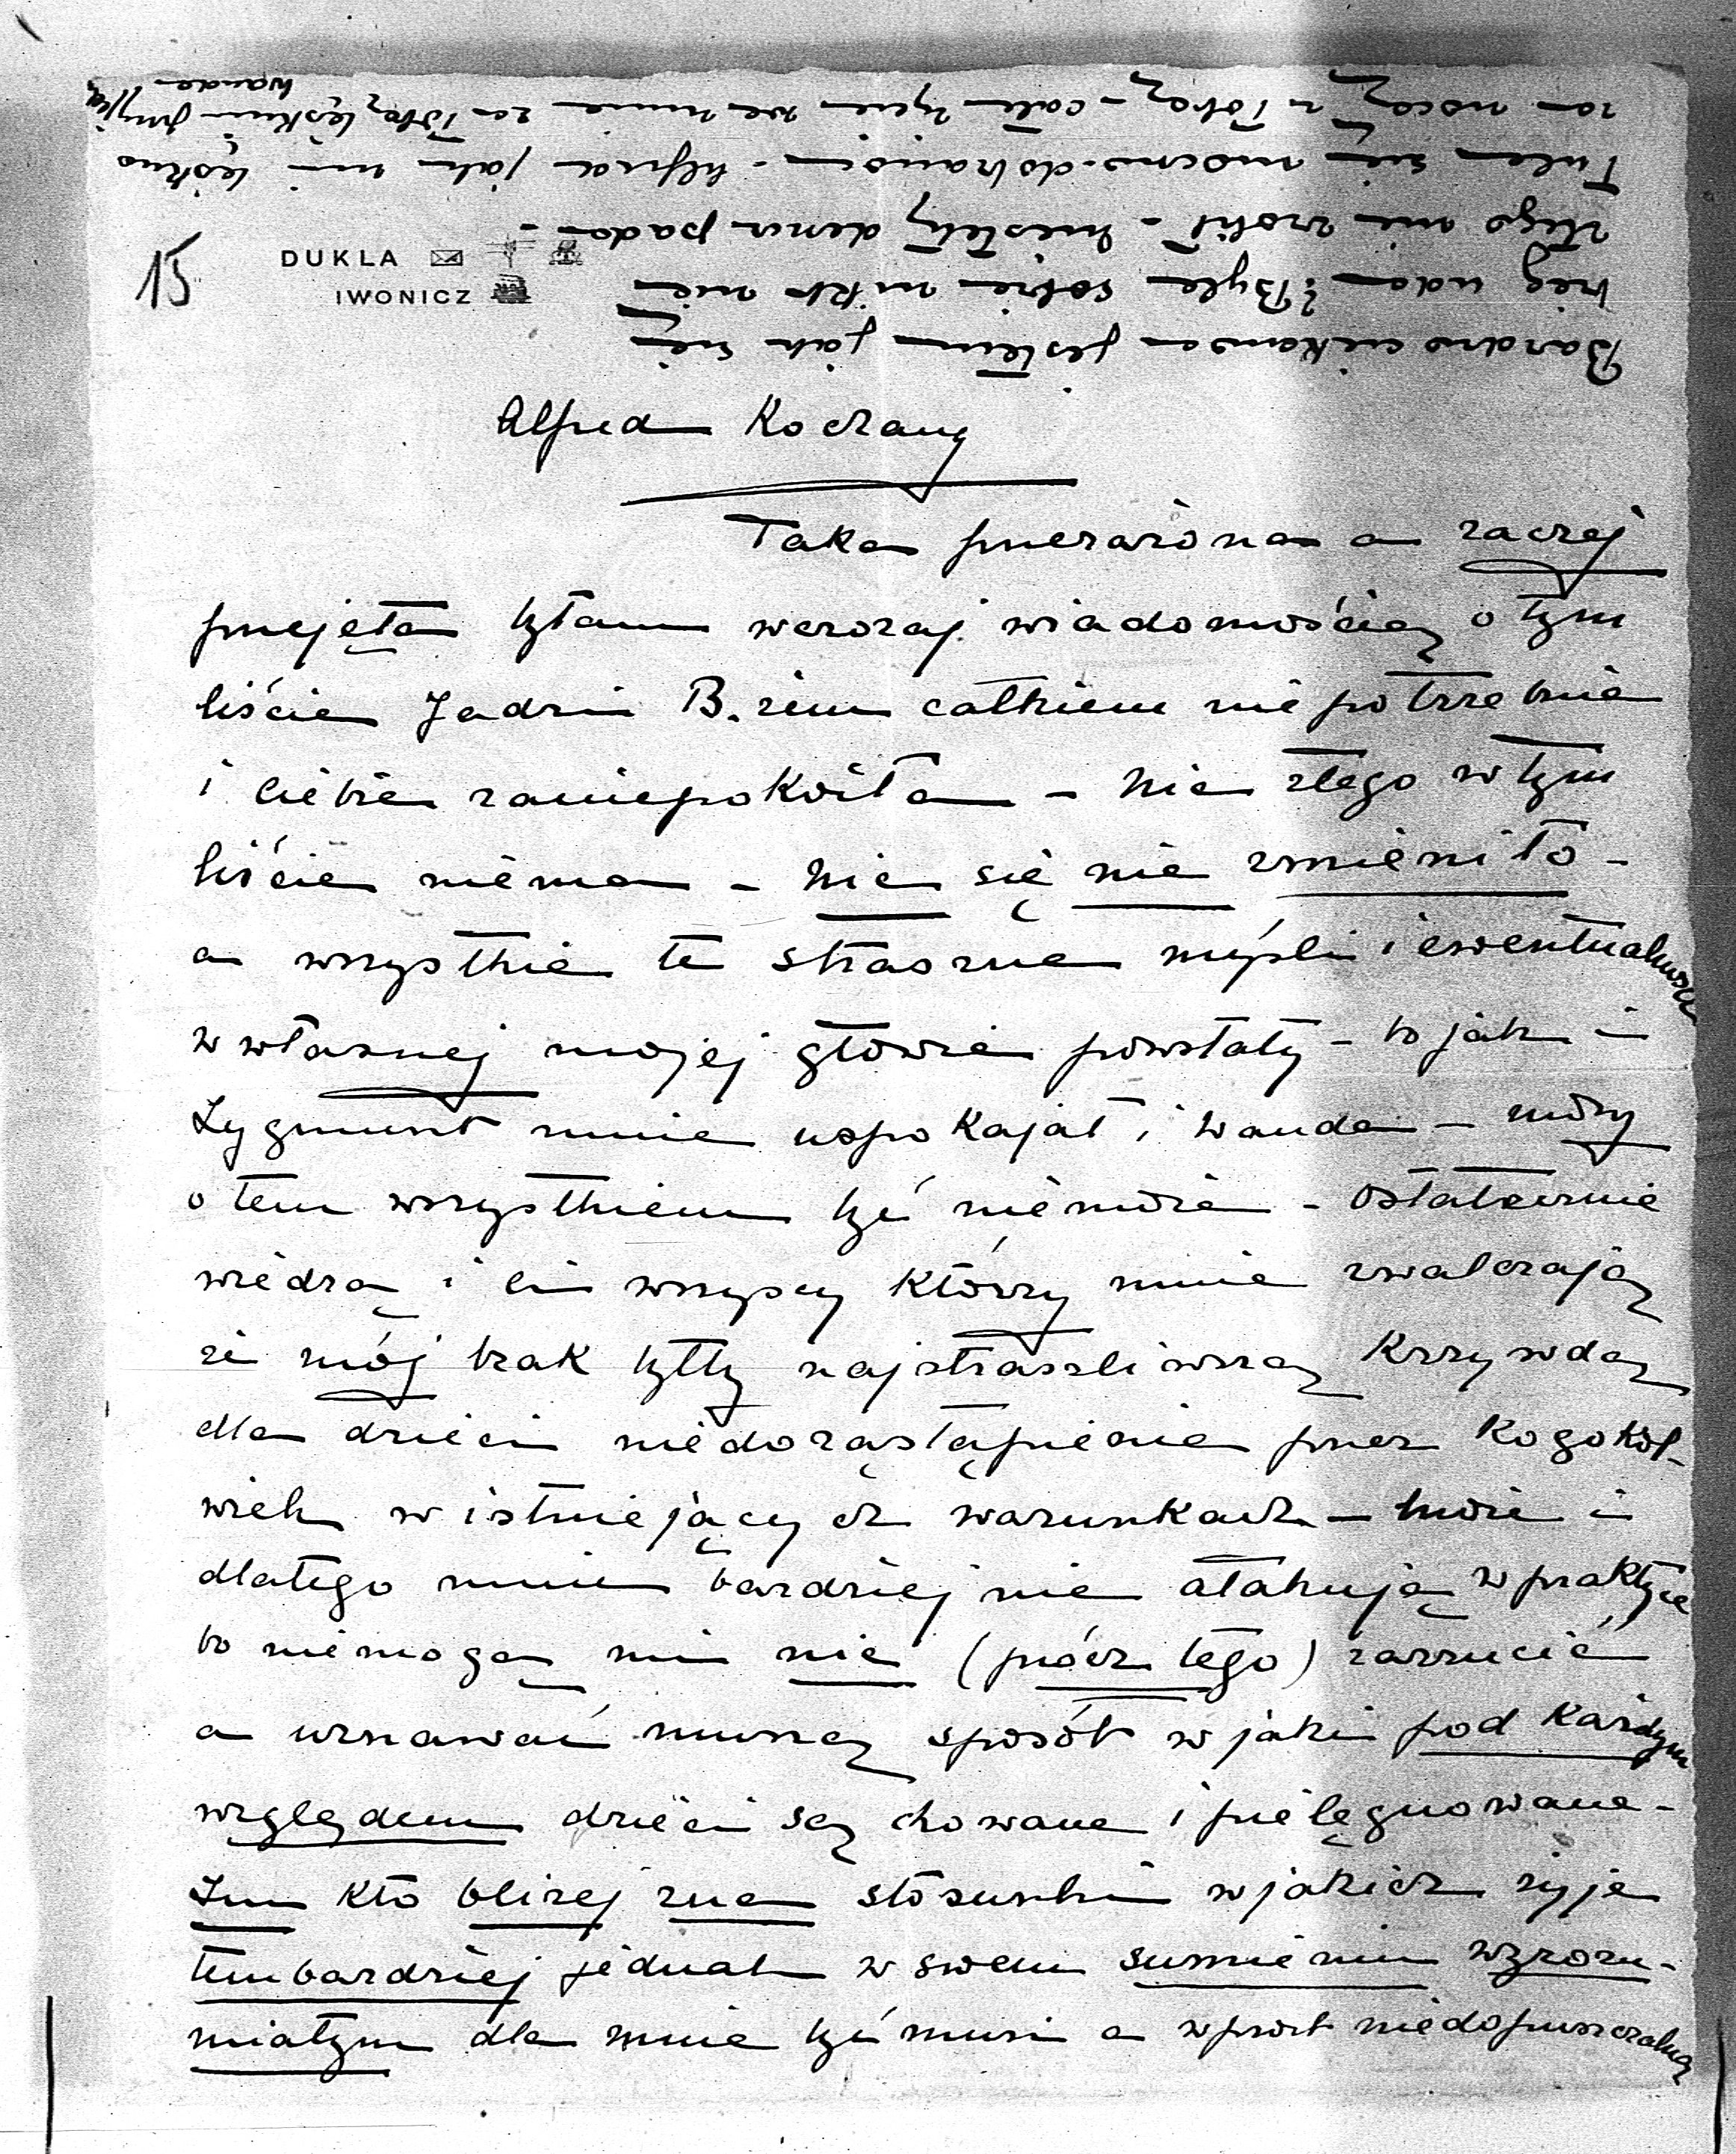 15
DUKLA
IWONICZ
Alfred Kochany
Taka przerażona a raczej
przejęta byłam wczoraj wiadomością o tym
liście Jadzi B. żem całkiem niepotrzebnie
i ciebie zaniepokoiła – Nic złego w tym
liście niema – nic się nie zmieniło –
a wszystkie te straszne myśli i ewentualności
w własnej mojej głowie powstały – bo jak i
Zygmunt mnie uspokajał i Wanda – mowy
o tem wszystkiem być niemoże – ostatecznie
wiedzą i ci wszyscy którzy mnie zwalczają
że mój brak byłby najstraszliwszą krzywdą
dla dzieci niedozastąpienia przez kogokol-
wiek w istniejących warunkach – może i
dlatego mnie bardziej nie atakują w praktyce
bo niemogą mi nic (prócz tego) zarzucić
a uznawać muszą sposób w jaki pod każdym
względem dzieci są chowane i pielęgnowane –
Im kto bliżej zna stosunki w jakich żyje
tembardziej jednak w swem sumieniu wzrozu-
miałym dla mnie być musi a wprost niedopuszczalną
Bardzo ciekawa jestem jak się
bieg uda? Byle sobie nikt nic
złego nie zrobił – niestety deszcz pada –
Tulę się mocno – dobranoc – Alfred jak mi tęskno
za nocą z Tobą – całe życie we mnie za Tobą tęskni
Wanda